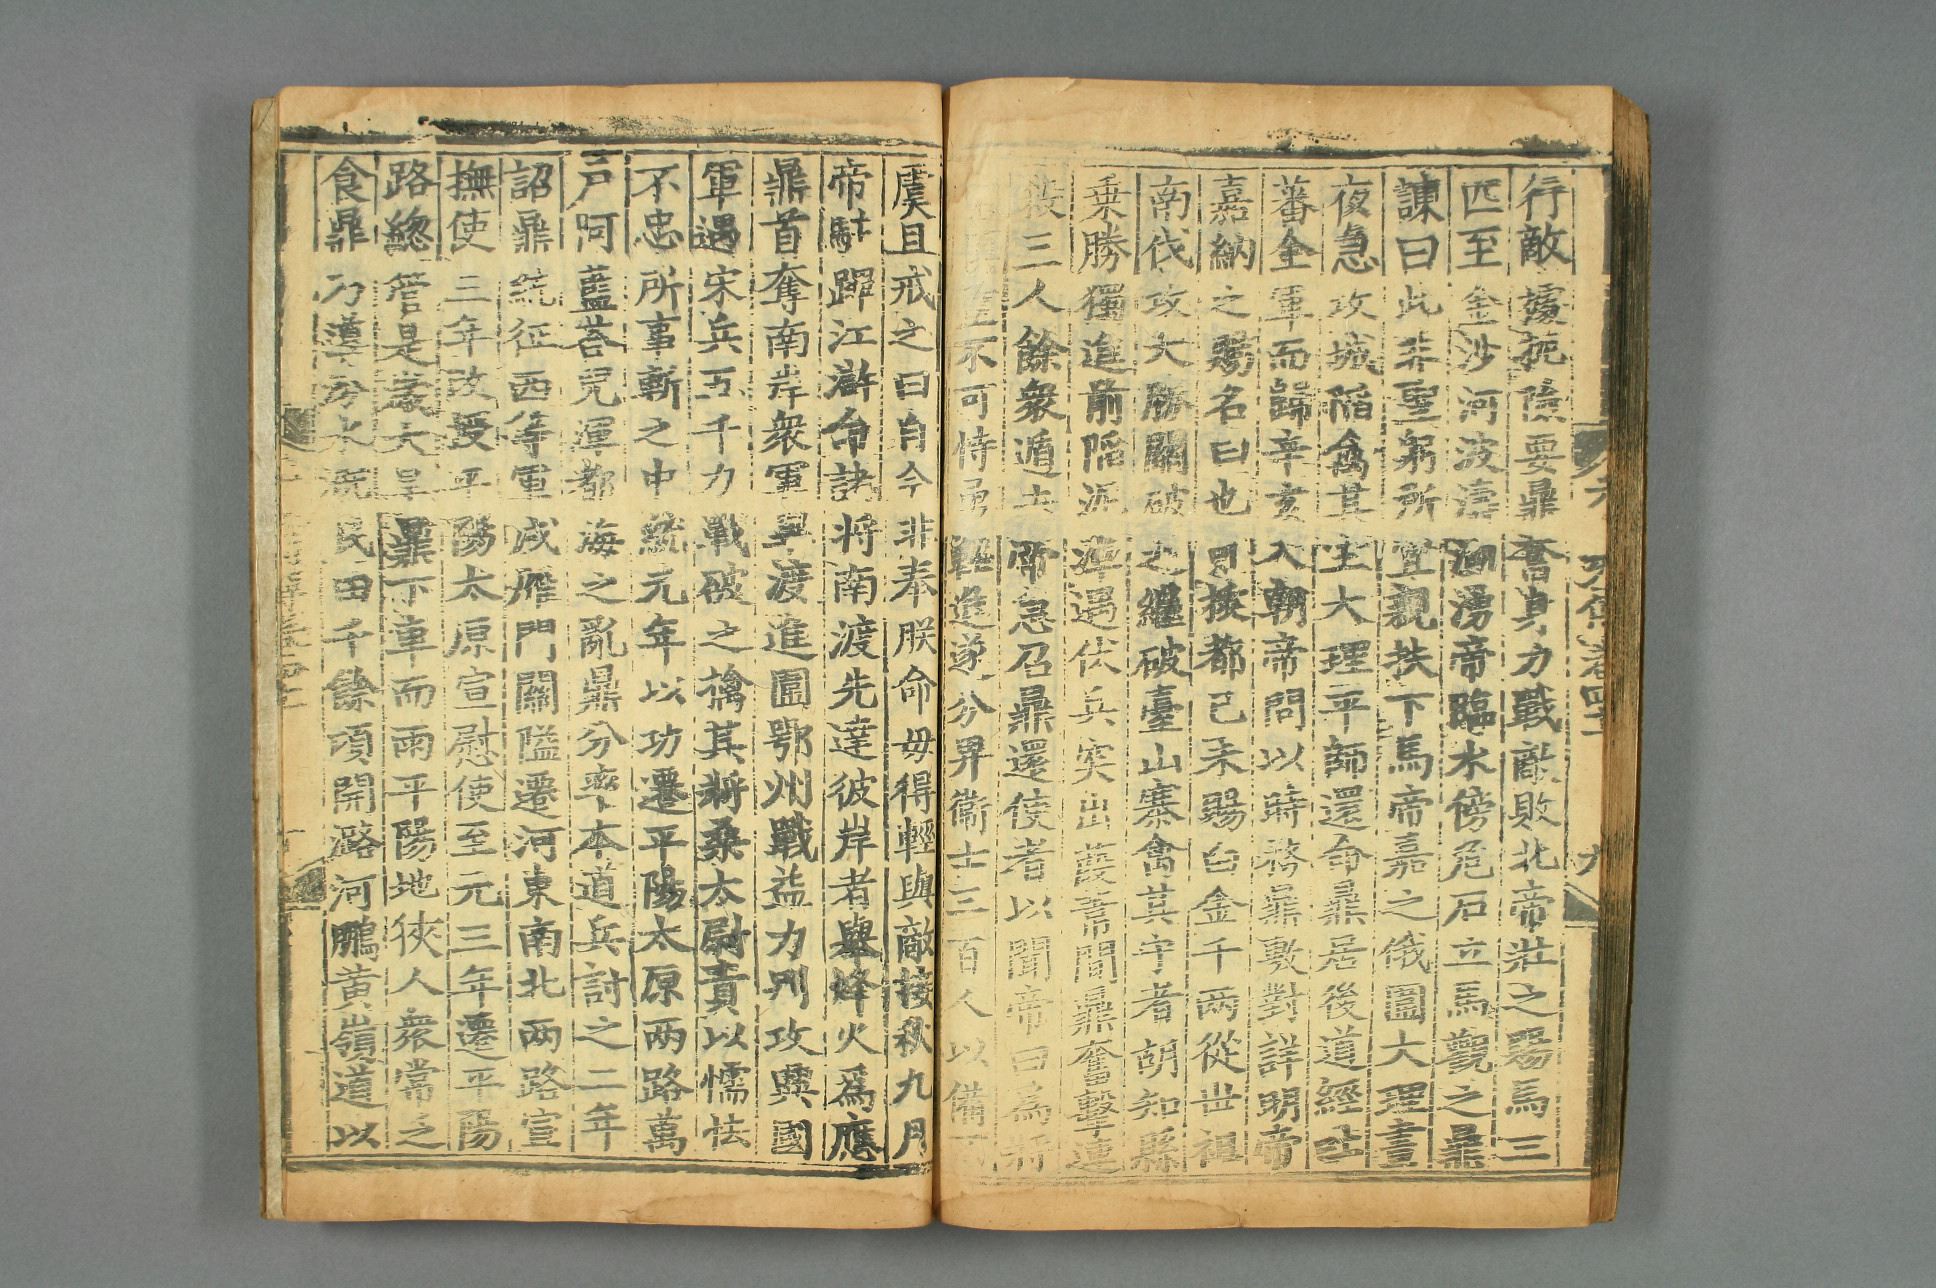 行敵據扼險要鼎奮身力戰敵敗北帝壯之賜馬三
匹至金沙河波濤洶湧帝臨水傍危石立馬觀之鼎
諫曰此非聖躬所宜親扶下馬帝嘉之俄圍大理晝
夜急攻城陷禽其主大理平師還命鼎居後道經吐
蕃全軍而歸辛亥入朝帝問以時務鼎敷對詳明帝
嘉納之賜名曰也可拔都己未賜白金千两從世祖
南伐攻大勝關破之繼破臺山寨禽其守者胡知縣
乗勝獨進前陷泥淖遇伏兵突出葭葦間鼎奮擊連
殺三人餘衆遁去帝急召鼎還使者以聞帝曰為將
慎重不可恃勇輕進遂分界衞士三百人以備不
虞且戒之曰自今非奉朕命毋得輕與敵接秋九月
帝駐蹕江滸命諸將南渡先達彼岸者舉烽火爲應
鼎首奪南岸衆軍畢渡進圍鄂州戰益力別攻興國
軍遇宋兵五千力戰破之擒其將桑太尉責以懦怯
不忠所事斬之中統元年以功遷平陽太原两路萬
戸阿藍荅兒渾都海之亂鼎分率本道兵討之二年
詔鼎統征西等軍戍雁門關隘遷河東南北两路宣
撫使三年改授平陽太原宣慰使至元三年遷平陽
路緫管是歲大旱鼎下車而雨平陽地狹人衆常乏
食鼎乃導汾水溉民田千餘頃開潞河鵬黃嶺道以